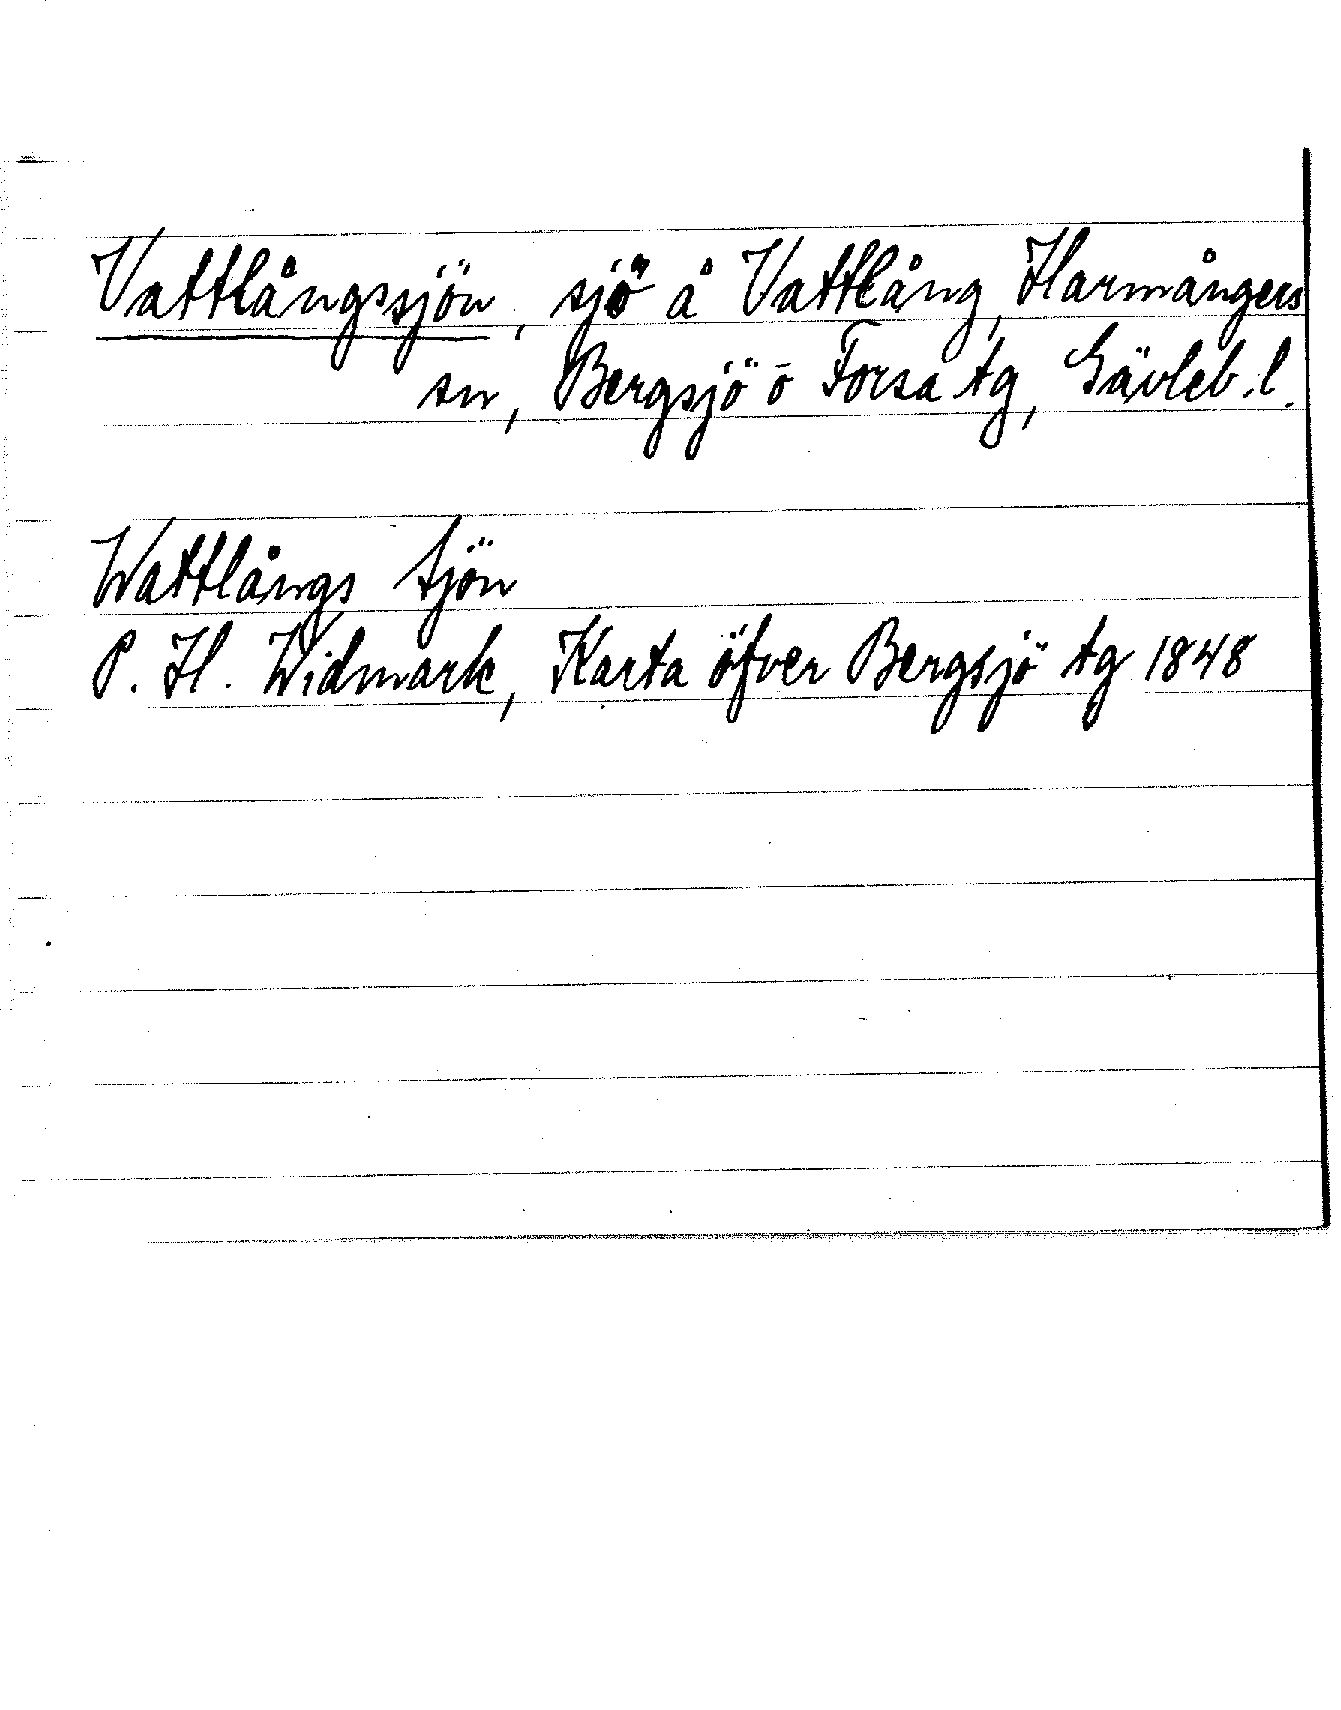 Vattlångssjön, sjö å Vattlång, Harmångers
sn, Bergsjö o Forsa tg, Gävleb. l.
Wattlångs tjön
P. H. Widmark, Karta öfver Bergsjö tg 1848